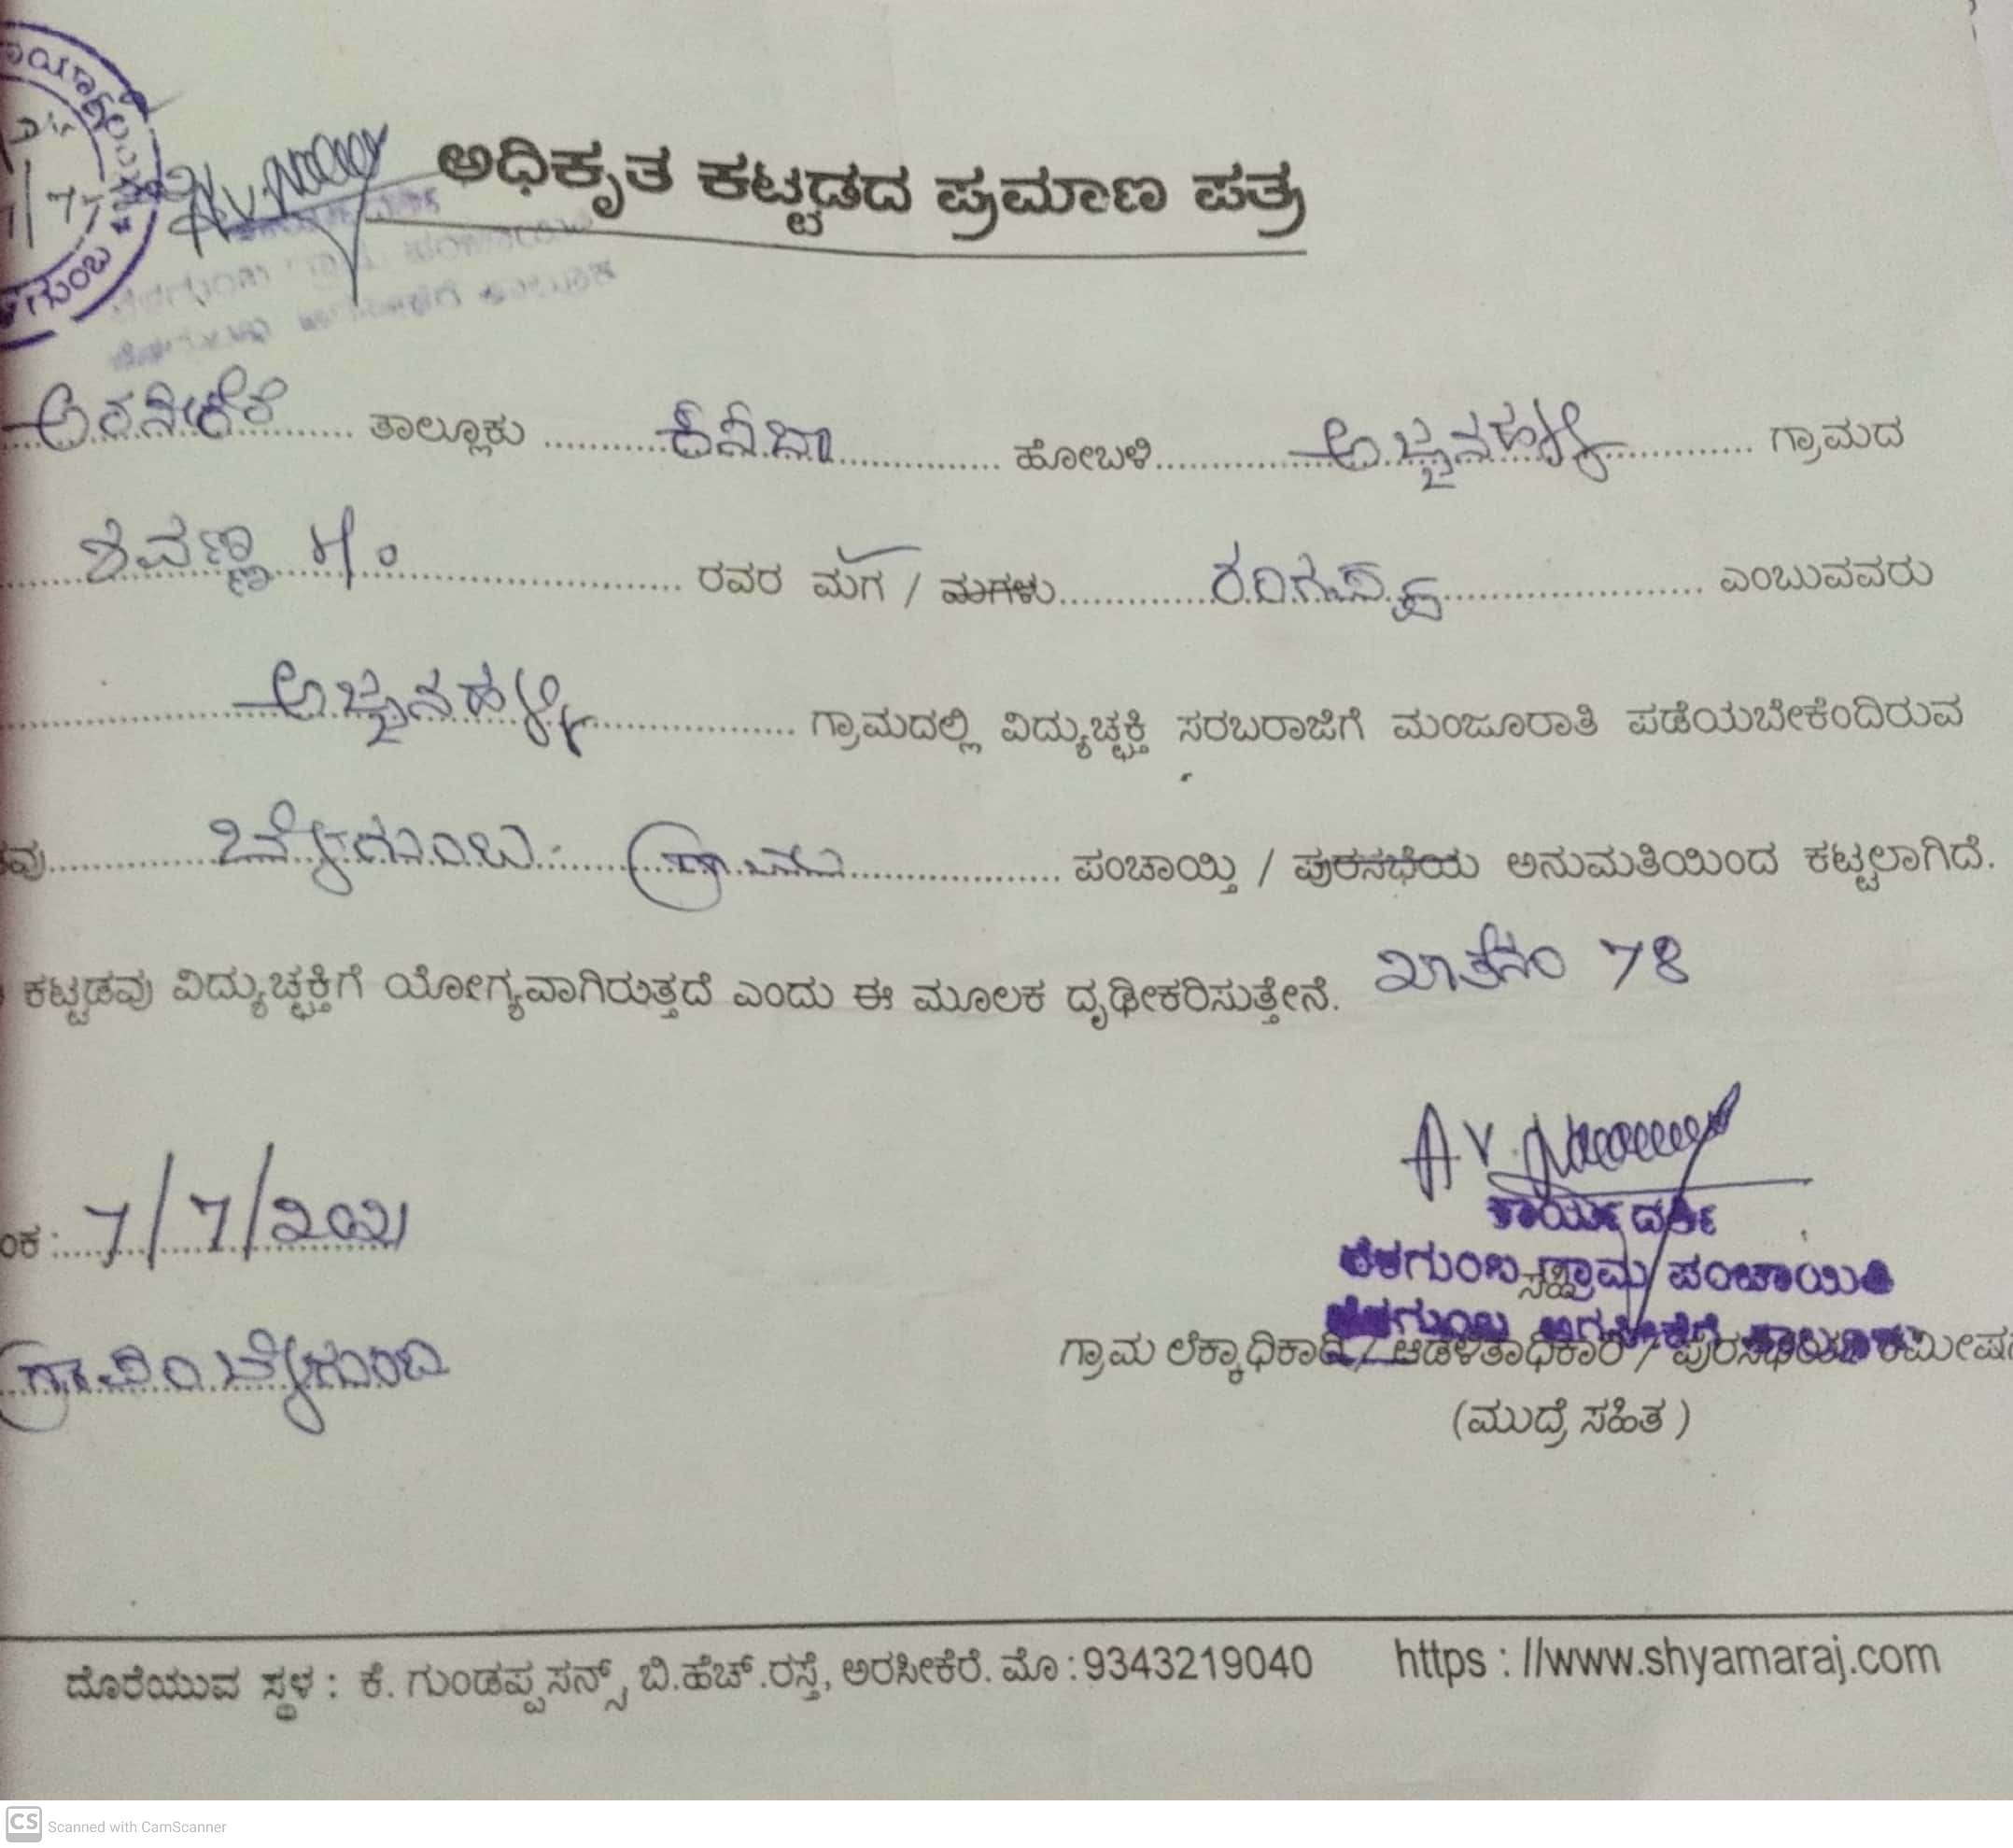 ಅಧಿಕೃತ ಕಟ್ಟಡದ ಪ್ರಮಾಣ ಪತ್ರ
ಅರಸೀಕೆರೆ ತಾಲ್ಲೂಕು ಕಸಬಾ ಹೋಬಳಿ ಅಜ್ಜನಹಳ್ಳಿ ಗ್ರಾಮದ
ಶಿವಣ್ಣ H. ರವರ ಮಗ / ಮಗಳು ರಂಗಪ್ಪ ಎಂಬುವವರು
ಅಜ್ಜನಹಳ್ಳಿ ಗ್ರಾಮದಲ್ಲಿ ವಿದ್ಯುಚ್ಛಕ್ತಿ ಸರಬರಾಜಿಗೆ ಮಂಜೂರಾತಿ ಪಡೆಯಬೇಕೆಂದಿರುವ
ವು ಗ್ರಾಮ ಪಂಚಾಯ್ತಿ / ಪುರಸಭೆಯ ಅನುಮತಿಯಿಂದ ಕಟ್ಟಲಾಗಿದೆ.
ಕಟ್ಟಡವು ವಿದ್ಯುಚ್ಛಕ್ತಿಗೆ ಯೋಗ್ಯವಾಗಿರುತ್ತದೆ ಎಂದು ಈ ಮೂಲಕ ದೃಢೀಕರಿಸುತ್ತೇನೆ. ಖಾತೆನಂ 78
ಕಾರ್ಯದರ್ಶಿ
ಂಕ : 7/7/2021
ಗ್ರಾಮ ಪಂಚಾಯಿತಿ
ಗ್ರಾಮ ಲೆಕ್ಕಾಧಿಕಾರಿ / ಆಡಳಿತಾಧಿಕಾರಿ /
(ಮುದ್ರೆ ಸಹಿತ )
ದೊರೆಯುವ ಸ್ಥಳ : ಕೆ. ಗುಂಡಪ್ಪ ಸನ್ಸ್, ಬಿ.ಹೆಚ್.ರಸ್ತೆ, ಅರಸೀಕೆರೆ. ಮೊ : 9343219040 https : //www.shyamaraj.com
CS Scanned with CamScanner